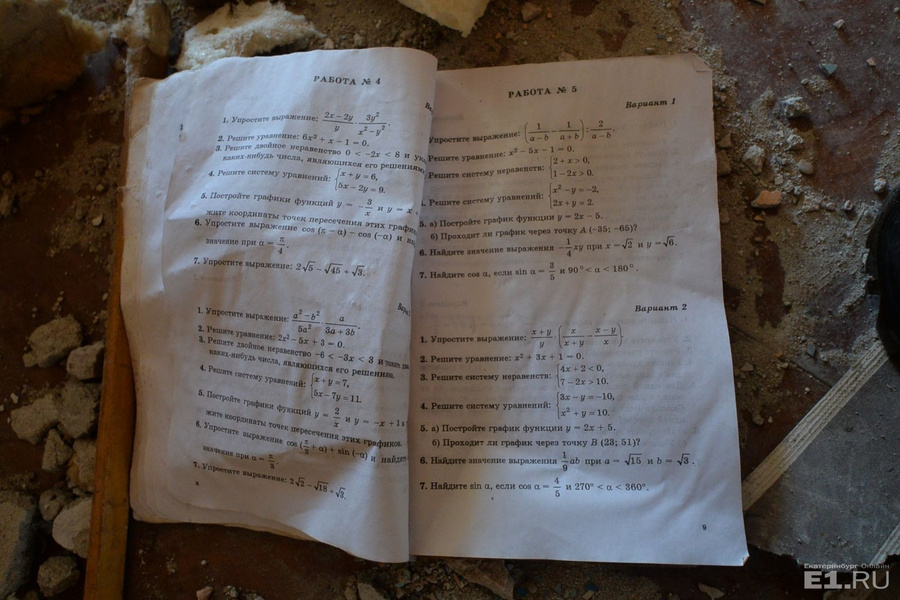 РАБОТА № 4
1. Упростите выражение: (2x − 2y)/y · 3y²/(x² − y²).
2. Решите уравнение: 6x² + x − 1 = 0.
3. Решите двойное неравенство 0 < −2x < 8 и
каких-нибудь числа, являющихся его решениями.
4. Решите систему уравнений: { x + y = 6, 5x − 2y = 9.
5. Постройте графики функций y = −3/x и y = x
жите координаты точек пересечения этих
6. Упростите выражение cos (π − α) − cos (−α) и
значение при α = π/4.
7. Упростите выражение: 2√5 − √45 + √3.
1. Упростите выражение: (a² − b²)/5a² · a/(3a + 3b).
2. Решите уравнение: 2x² − 5x + 3 = 0.
3. Решите двойное неравенство −6 < −3x < 3 и
каких-нибудь числа, являющихся его решениями.
4. Решите систему уравнений: { x + y = 7, 5x − 7y = 11.
5. Постройте графики функций y = 2/x и y = −x + 1
жите координаты точек пересечения этих графиков.
6. Упростите выражение cos (π/2 + α) + sin (−α) и найдите
значение при α = π/3.
7. Упростите выражение: 2√2 − √18 + √3.
8
РАБОТА № 5
Вариант 1
Упростите выражение: (1/(a − b) − 1/(a + b)) : 2/(a − b).
Решите уравнение: x² − 5x − 1 = 0.
Решите систему неравенств: { 2 + x > 0, 1 − 2x > 0.
Решите систему уравнений: { x² − y = −2, 2x + y = 2.
5. а) Постройте график функции y = 2x − 5.
б) Проходит ли график через точку A (−35; −65)?
6. Найдите значение выражения −1/4 xy при x = √2 и y = √6.
7. Найдите cos α, если sin α = 3/5 и 90° < α < 180°.
Вариант 2
1. Упростите выражение: (x + y)/y · (x/(x + y) − (x − y)/x)
2. Решите уравнение: x² + 3x + 1 = 0.
3. Решите систему неравенств: { 4x + 2 < 0, 7 − 2x > 10.
4. Решите систему уравнений: { 3x − y = −10, x² + y = 10.
5. а) Постройте график функции y = 2x + 5.
б) Проходит ли график через точку B (23; 51)?
6. Найдите значение выражения 1/9 ab при a = √15 и b = √3.
7. Найдите sin α, если cos α = 4/5 и 270° < α < 360°.
9
Екатеринбург Онлайн
E1.RU